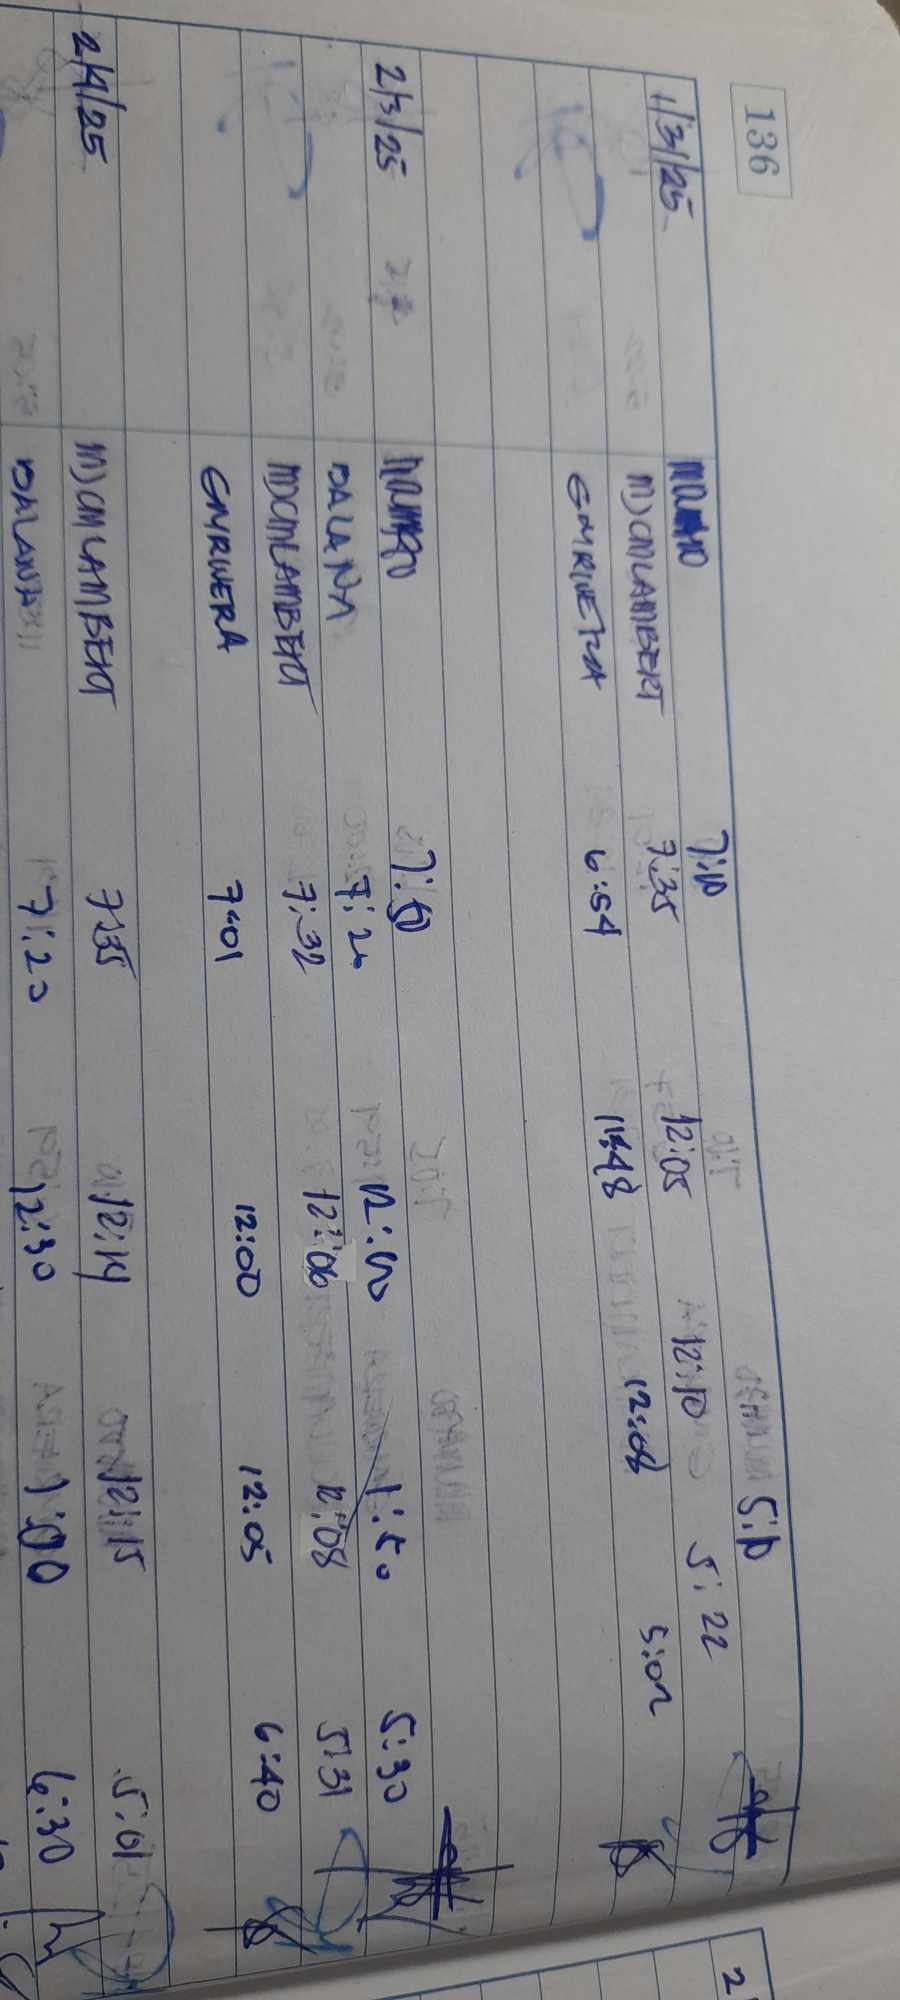 136
1/31/25 7:10 5:10
MJCMLAMBERT 7:35 12:05 12:10 5:22
GMRIVERA 6:54 11:48 12:08 5:02
2/3/25 7:50
DALANA 7:20 12:50 1:50 5:30
MJCMLAMBERT 7:32 12:06 12:08 5:31
GMRIVERA 7:01 12:00 12:05 6:40
2/4/25 MJCMLAMBERT 7:35 12:14 12:15 5:01
DALANA 7:20 12:30 1:00 6:30